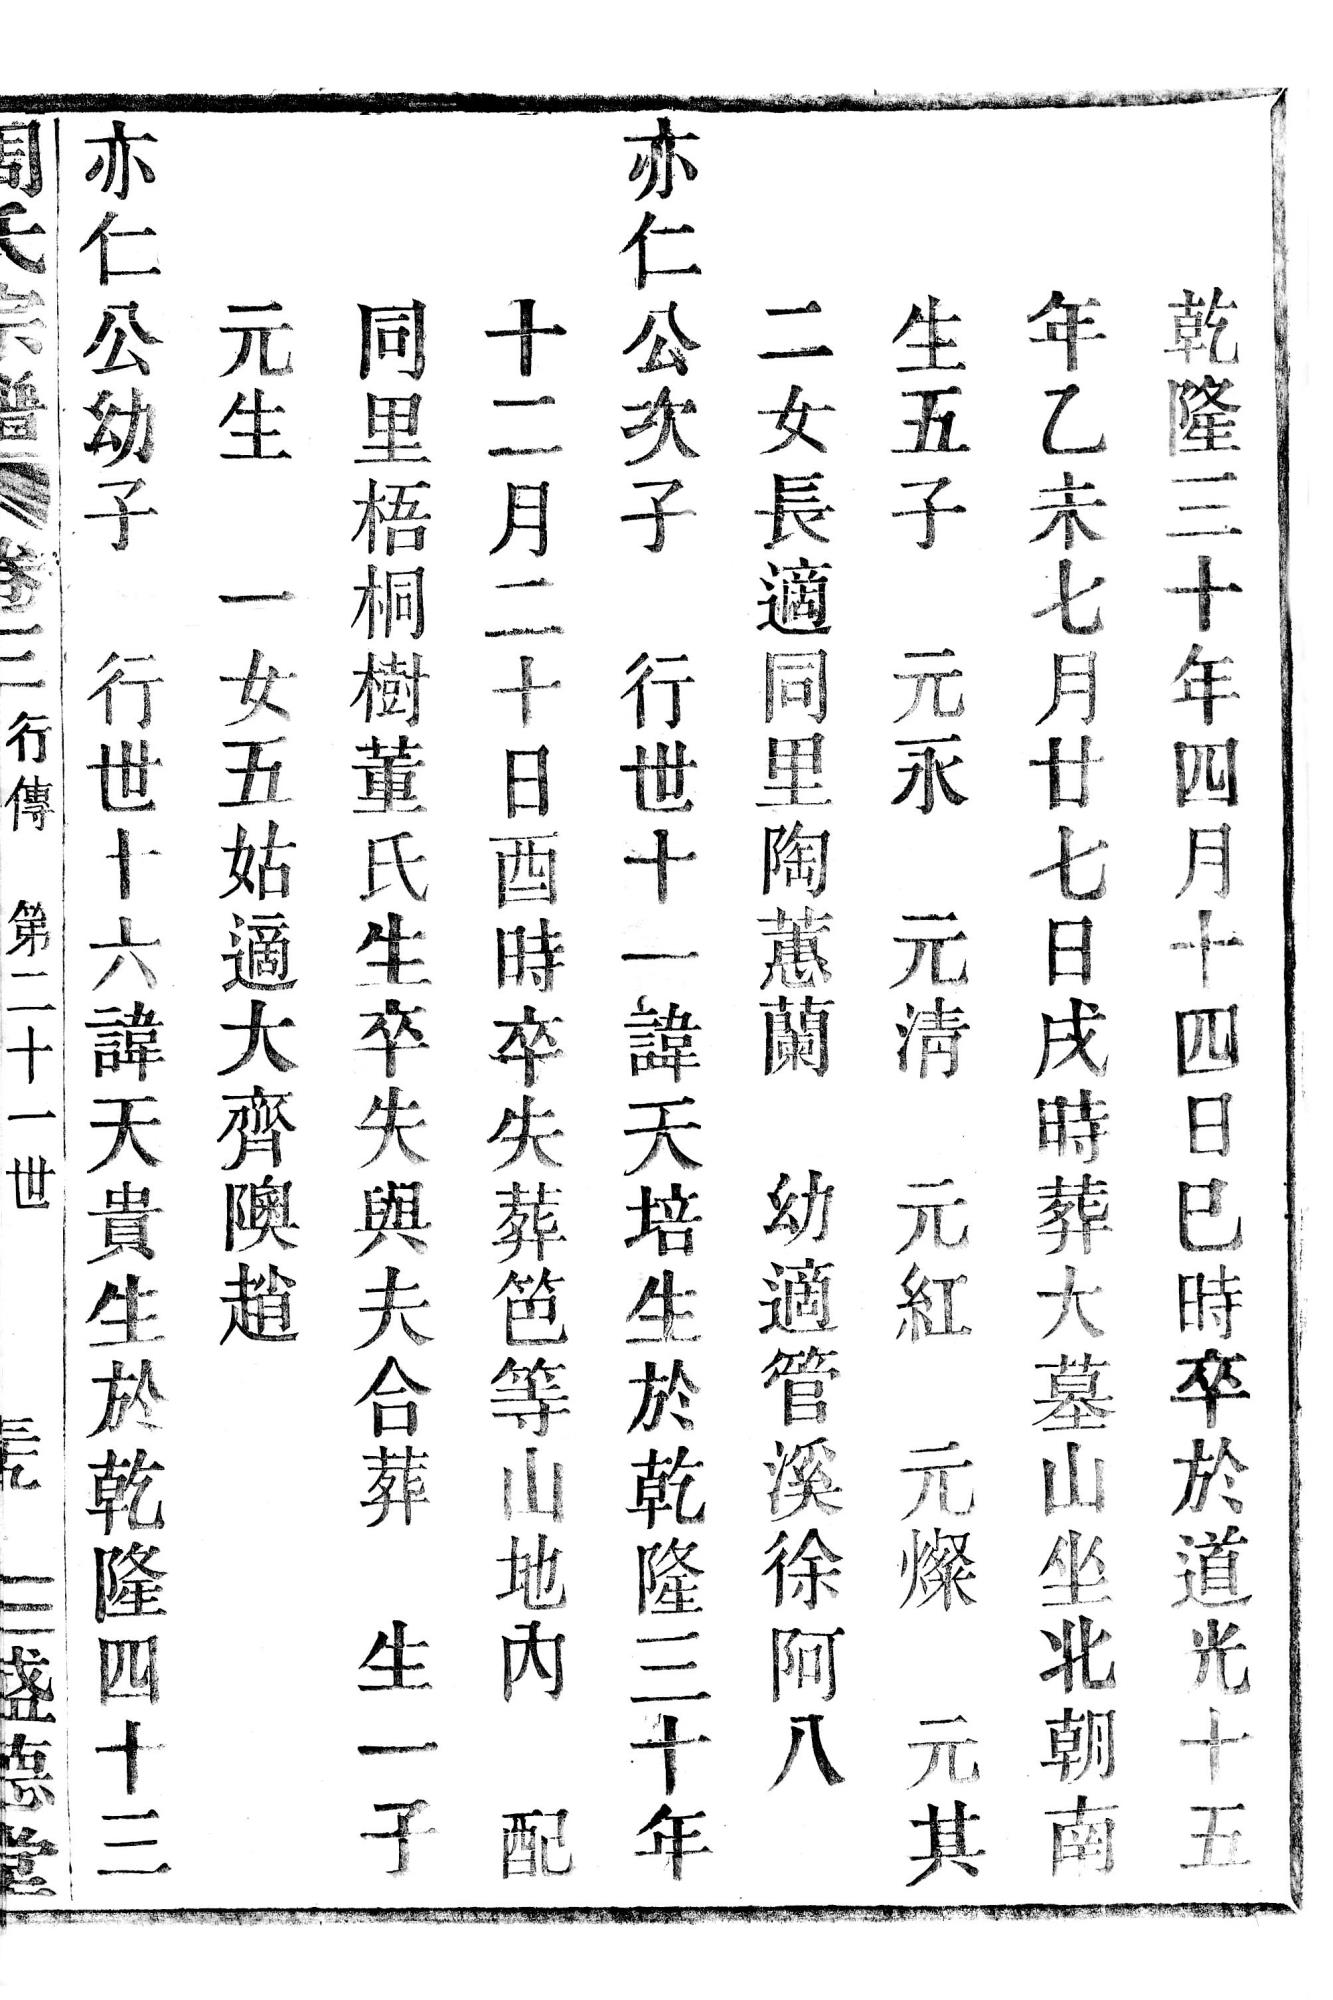 乾隆三十年四月十四日巳時卒於道光十五
年乙未七月廿七日戌時葬大墓山坐北朝南
生五子　元永　元清　元紅　元燦　元其
二女長適同里陶蕙蘭　幼適管溪徐阿八
亦仁公次子　行世十一諱天培生於乾隆三十年
十二月二十日酉時卒失葬笆等山地內　配
同里梧桐樹董氏生卒失與夫合葬　生一子
元生　一女五姑適大齊隩趙
亦仁公幼子　行世十六諱天貴生於乾隆四十三
周氏宗譜　卷三　行傳　第二十一世　三盛德堂